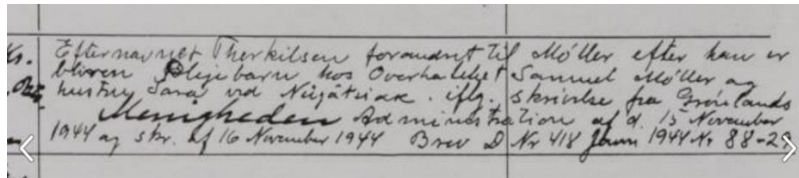 Efternavnet Therkilsen forandret til Møller efter han er
bleven Plejebarn hos Overkateket Samuel Møller og
hustru Sara ved Nûgâtsiak . iflg. skrivelse fra Grønlands
Menigheden Administration af d. 15 November
1944 og skr. af 16 November 1944 Brev D Nr 418 Journ 1944 Nr 88-29